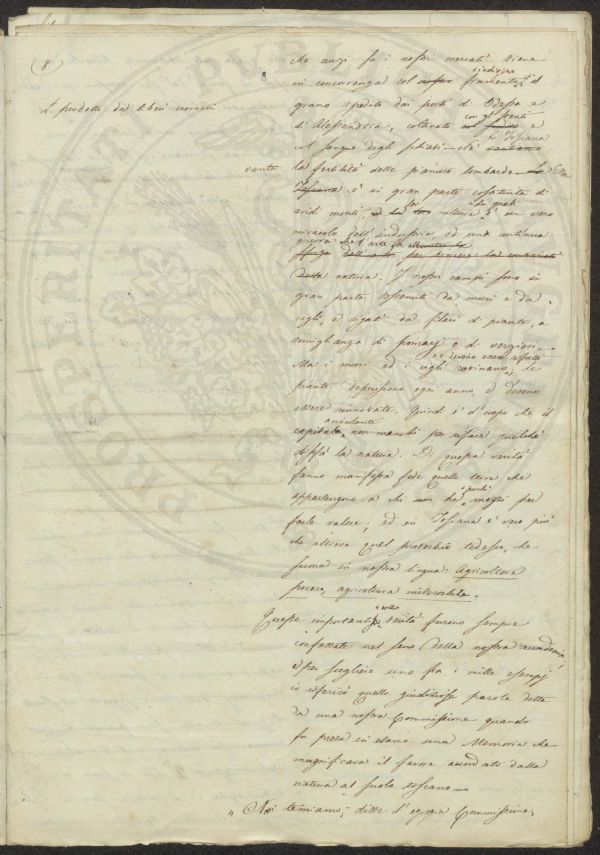 (8)
che anzi su i nostri mercati viene
indigeno
in concorrenza col nostro frumento il
+ prodotto da liberi uomini
grano spedito dai porti di Odessa e
di Alessandria, coltivato con gli stenti e
col sangue degli schiavi — la Toscana
vanta la fertilità delle pianure lombarde — Essa
Toscana è in gran parte costituita di
aridi monti, la cultura de quali è un vero
miracolo dell'industria, ed una continua
guerra che l'arte fa alla
della natura. I nostri campi sono in
gran parte sostenuti da muri e da
cigli, e rigati da filari di piante, a
somiglianza di pomarj e di verzieri.
Ma i muri ed i cigli rovinano, e devono essere rifatti; le
piante deperiscono ogni anno, e devono
essere rinnovate. Quindi è d'uopo che il
capitale aiutante non manchi per rifare quelchè
disfà la natura. Di questa verità
fanno manifesta fede quelle terre, che
appartengono a chi non ha mezzi per
farle valere; ed in Toscana è vero più
che altrove quel proverbio tedesco, che
suona in nostra lingua: Agricoltore
povero, agricoltura miserabile.
Queste importanti verità furono sempre
confessate nel seno della nostra accademia,
e per scegliere uno fra i mille esempj
io riferirò quelle giudiziose parole dette
da una nostra Commissione quando
fu presa in esame una Memoria che
magnificava il favore accordato dalla
natura al suolo toscano —
„ Noi temiamo, disse l'egregia Commissione,